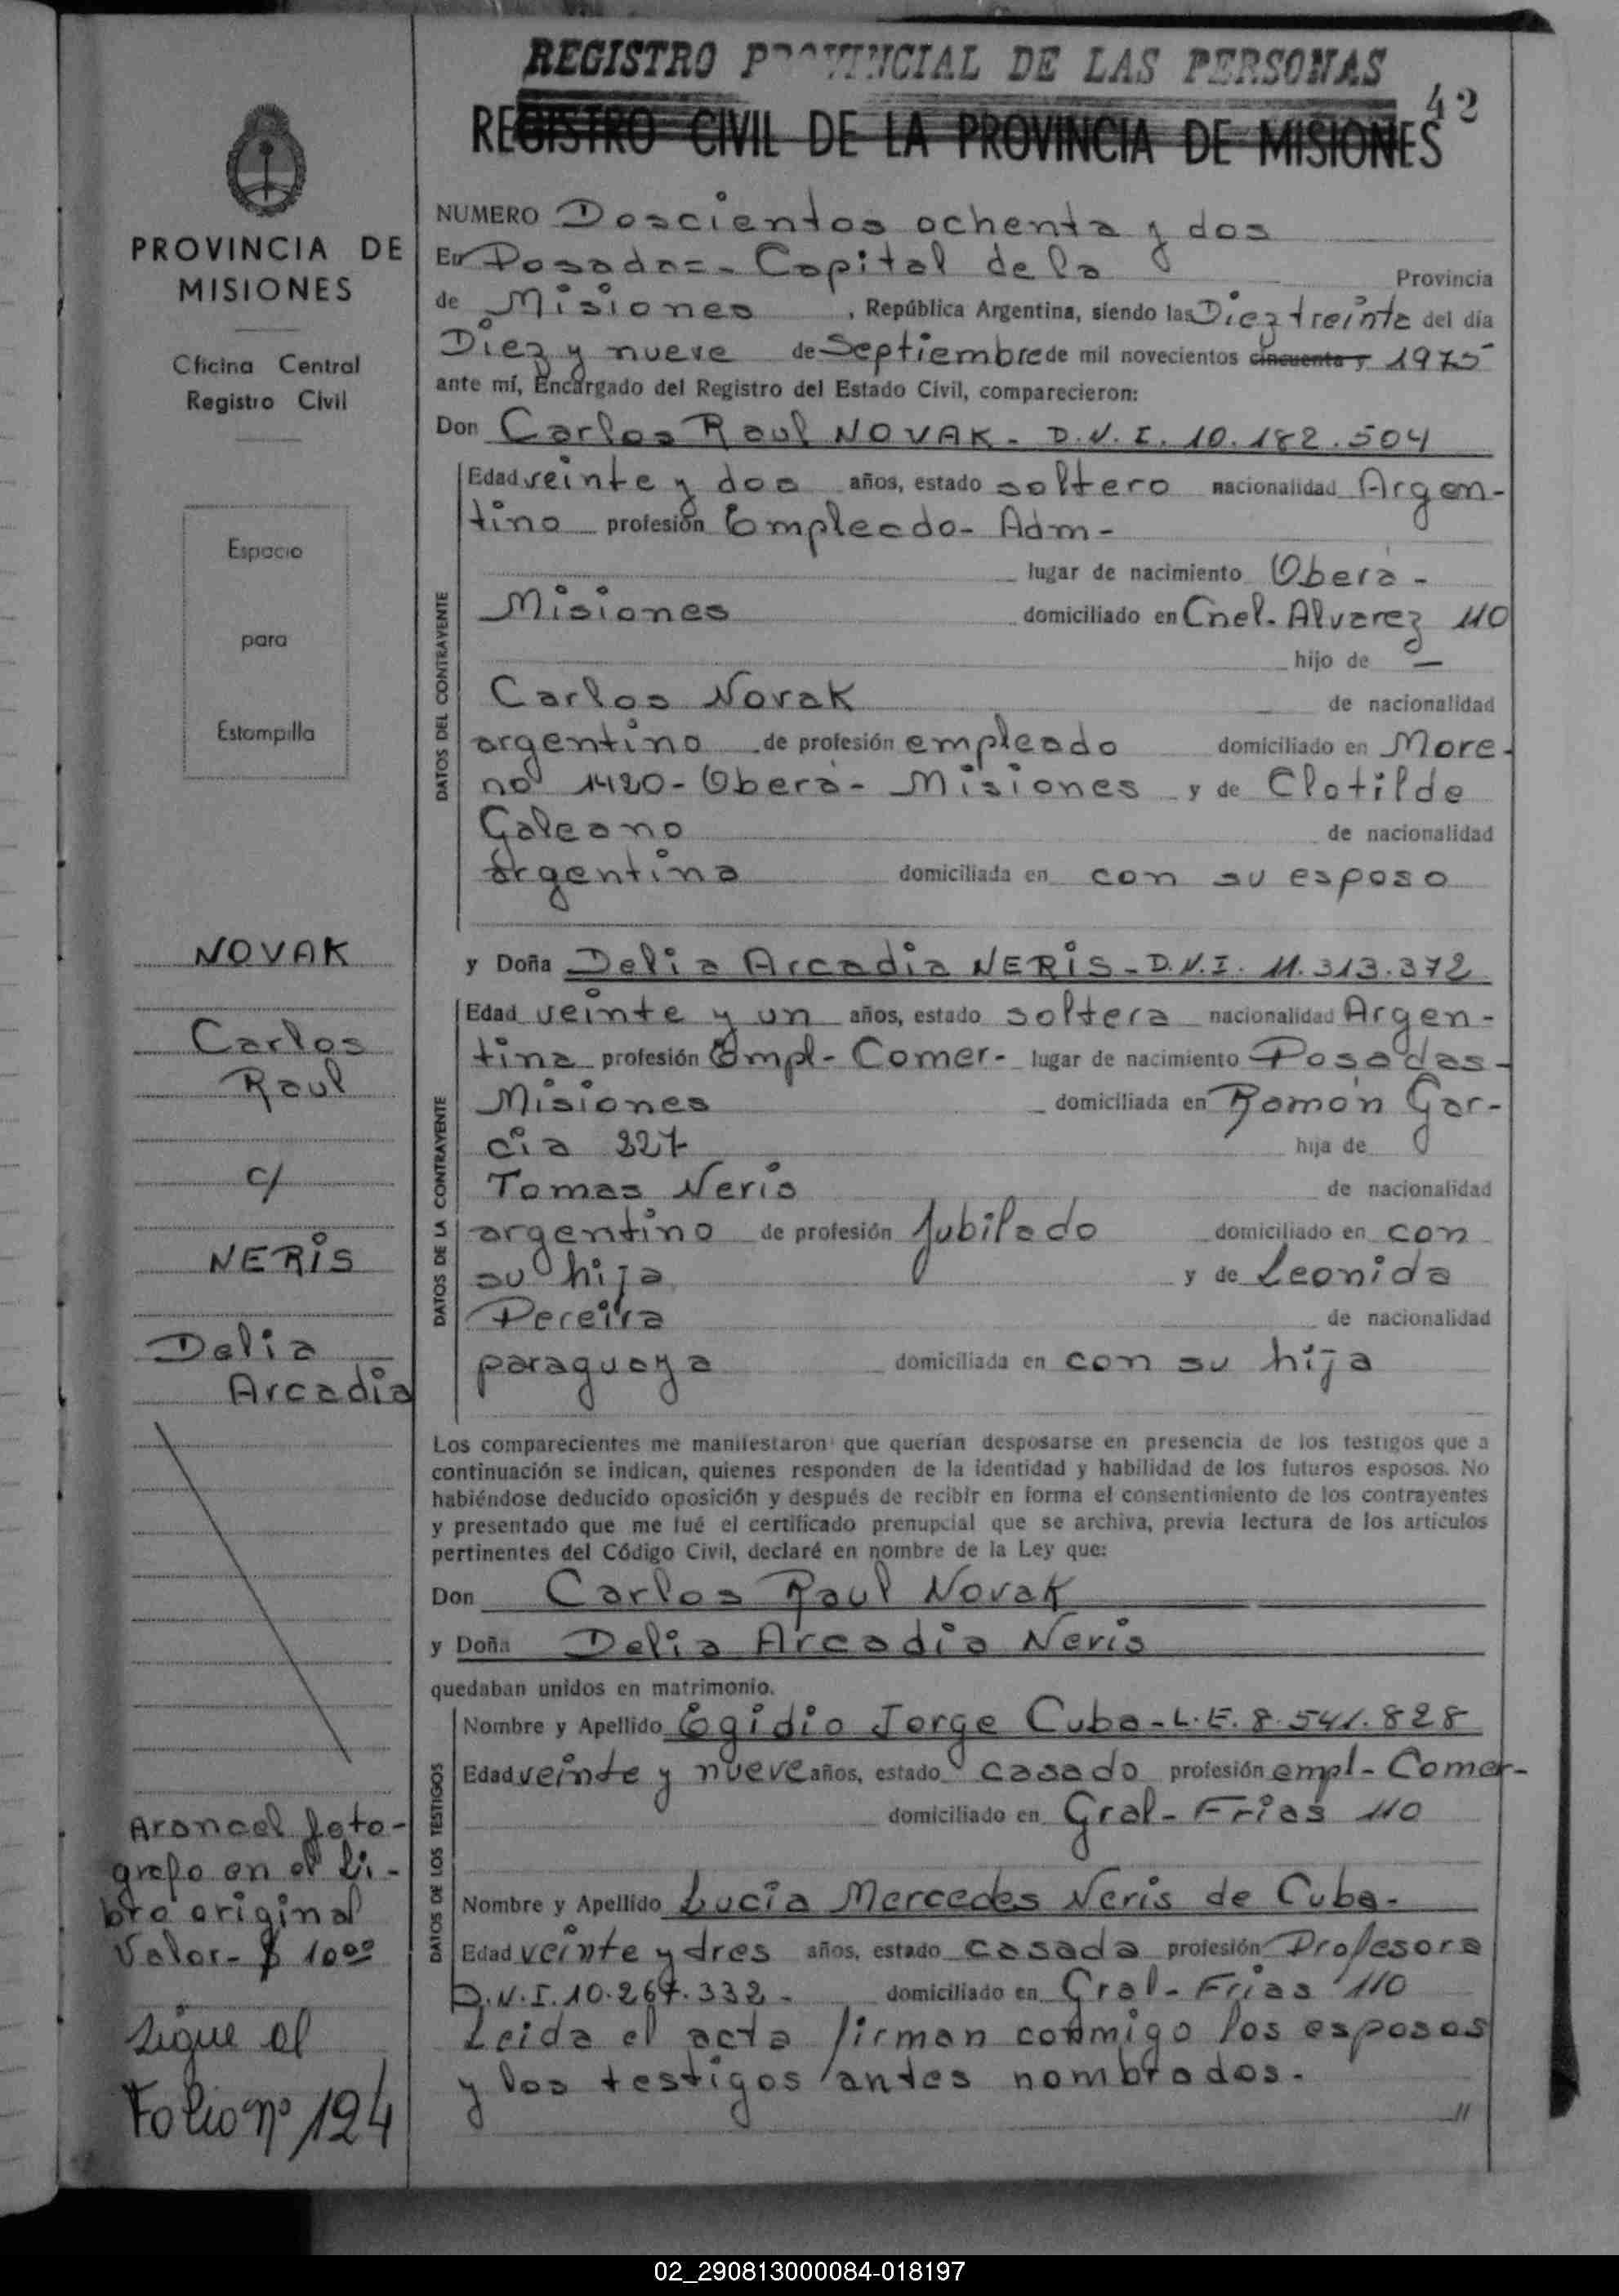 REGISTRO PROVINCIAL DE LAS PERSONAS
42
REGISTRO CIVIL DE LA PROVINCIA DE MISIONES
PROVINCIA DE
MISIONES
Oficina Central
Registro Civil
Espacio
para
Estampilla
NOVAK
Carlos
Raul
c/
NERIS
Delia
Arcadia
Arancel foto-
grafo en el li-
bro original
Valor- $ 10ºº
Sigue al
Folio nº 124
NUMERO Doscientos ochenta y dos
En Posadas- Capital de la Provincia
de Misiones, República Argentina, siendo las Diez treinta del día
Diez y nueve de Septiembre de mil novecientos cincuenta y 1975
ante mí, Encargado del Registro del Estado Civil, comparecieron:
Don Carlos Raul NOVAK- D.N.I. 10.182.504
DATOS DEL CONTRAYENTE
Edad veinte y dos años, estado soltero nacionalidad Argen-
tino profesión Empleado- Adm-
lugar de nacimiento Oberá-
Misiones domiciliado en Cnel. Alvarez 110
hijo de —
Carlos Novak de nacionalidad
argentino de profesión empleado domiciliado en More-
no 1420- Oberá- Misiones y de Clotilde
Galeano de nacionalidad
argentina domiciliada en con su esposo
y Doña Delia Arcadia NERIS- D.N.I. 11.313.372
DATOS DE LA CONTRAYENTE
Edad veinte y un años, estado soltera nacionalidad Argen-
tina profesión Empl- Comer- lugar de nacimiento Posadas-
Misiones domiciliada en Ramón Gar-
cia 327 hija de
Tomas Neris de nacionalidad
argentino de profesión Jubilado domiciliado en con
su hija y de Leonida
Pereira de nacionalidad
paraguaya domiciliada en con su hija
Los comparecientes me manifestaron que querían desposarse en presencia de los testigos que a
continuación se indican, quienes responden de la identidad y habilidad de los futuros esposos. No
habiéndose deducido oposición y después de recibir en forma el consentimiento de los contrayentes
y presentado que me fué el certificado prenupcial que se archiva, previa lectura de los artículos
pertinentes del Código Civil, declaré en nombre de la Ley que:
Don Carlos Raul Novak
y Doña Delia Arcadia Neris
quedaban unidos en matrimonio.
DATOS DE LOS TESTIGOS
Nombre y Apellido Egidio Jorge Cuba- L.E. 8.541.828
Edad veinte y nueve años, estado casado profesión empl- Comer-
domiciliado en Gral- Frias 110
Nombre y Apellido Lucía Mercedes Neris de Cuba-
Edad veinte y tres años, estado casada profesión Profesora
D.N.I. 10.267.332- domiciliado en Gral- Frias 110
Leida el acta firman conmigo los esposos
y los testigos antes nombrados.-
//
02_290813000084-018197